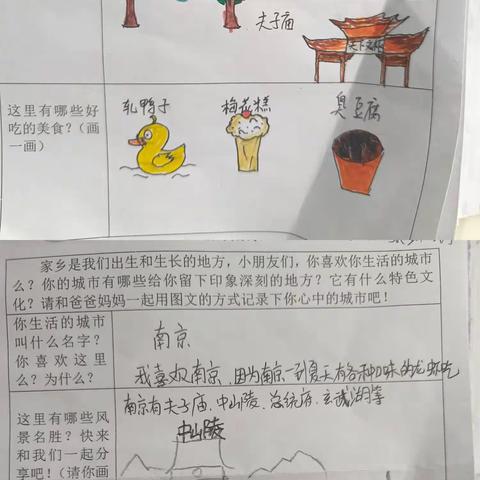 夫子庙
天下文枢
这里有哪些好
吃的美食?(画
一画)
乳鸭子
梅花糕
臭豆腐
家乡是我们出生和生长的地方,小朋友们,你喜欢你生活的城市
么?你的城市有哪些给你留下印象深刻的地方?它有什么特色文
化?请和爸爸妈妈一起用图文的方式记录下你心中的城市吧!
你生活的城市
叫什么名字?
你喜欢这里
么?为什么?
南京
我喜欢南京,因为南京一到夏天有各种口味的龙虾吃
这里有哪些风
景名胜?快来
和我们一起分
享吧!(请你画
南京有夫子庙、中山陵、总统府、玄武湖等
中山陵